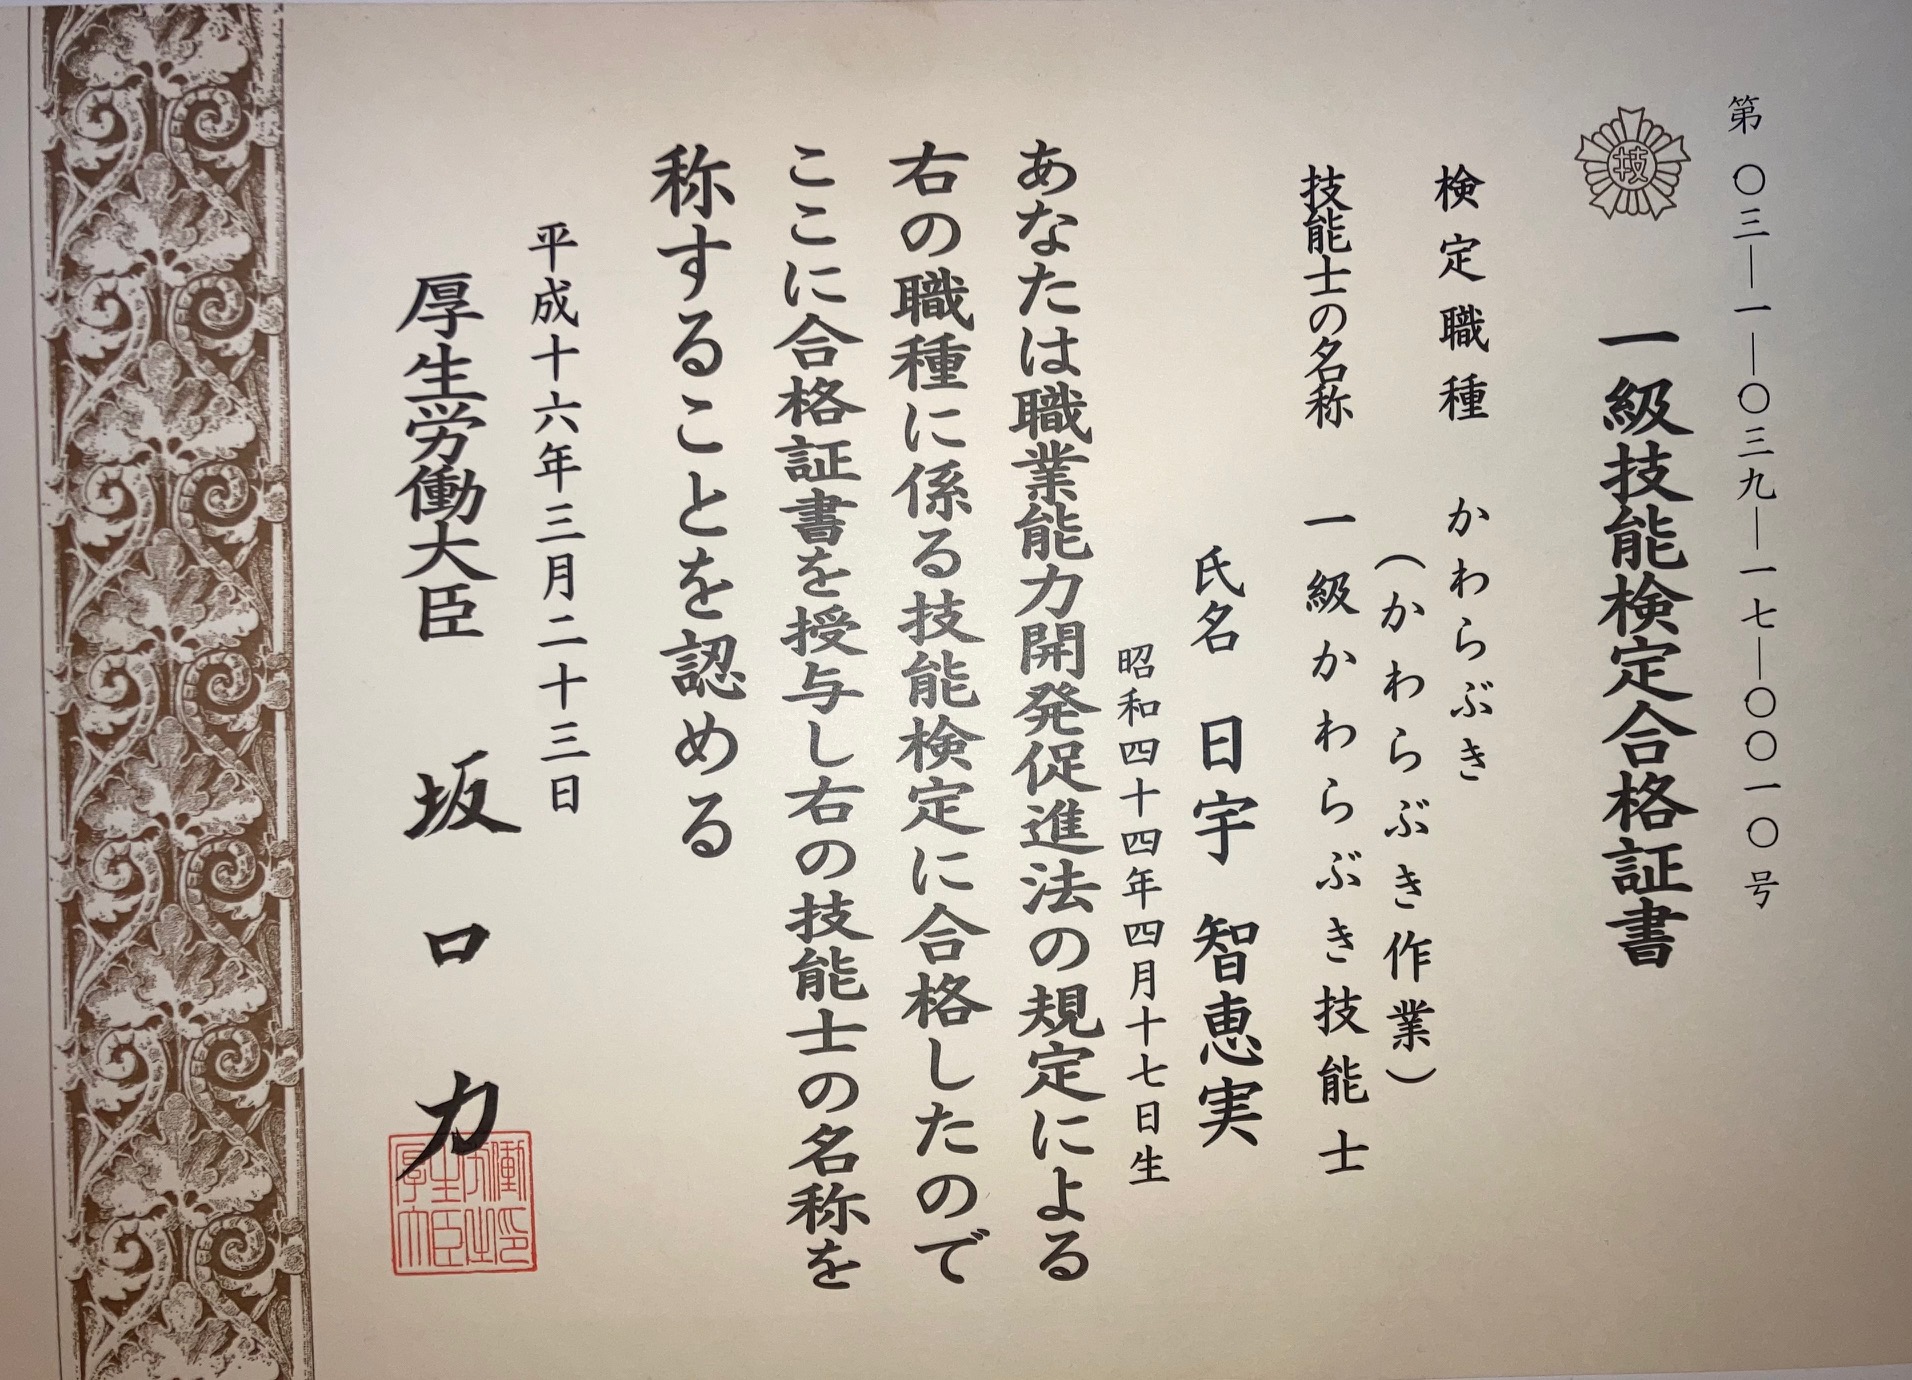 第〇三―一―〇三九―一七―〇〇一〇号
技
一級技能検定合格証書
検定職種 かわらぶき
（かわらぶき作業）
技能士の名称 一級かわらぶき技能士
氏名 日宇 智恵実
昭和四十四年四月十七日生
あなたは職業能力開発促進法の規定による
右の職種に係る技能検定に合格したので
ここに合格証書を授与し右の技能士の名称を
称することを認める
平成十六年三月二十三日
厚生労働大臣 坂口力
厚生労働大臣之印